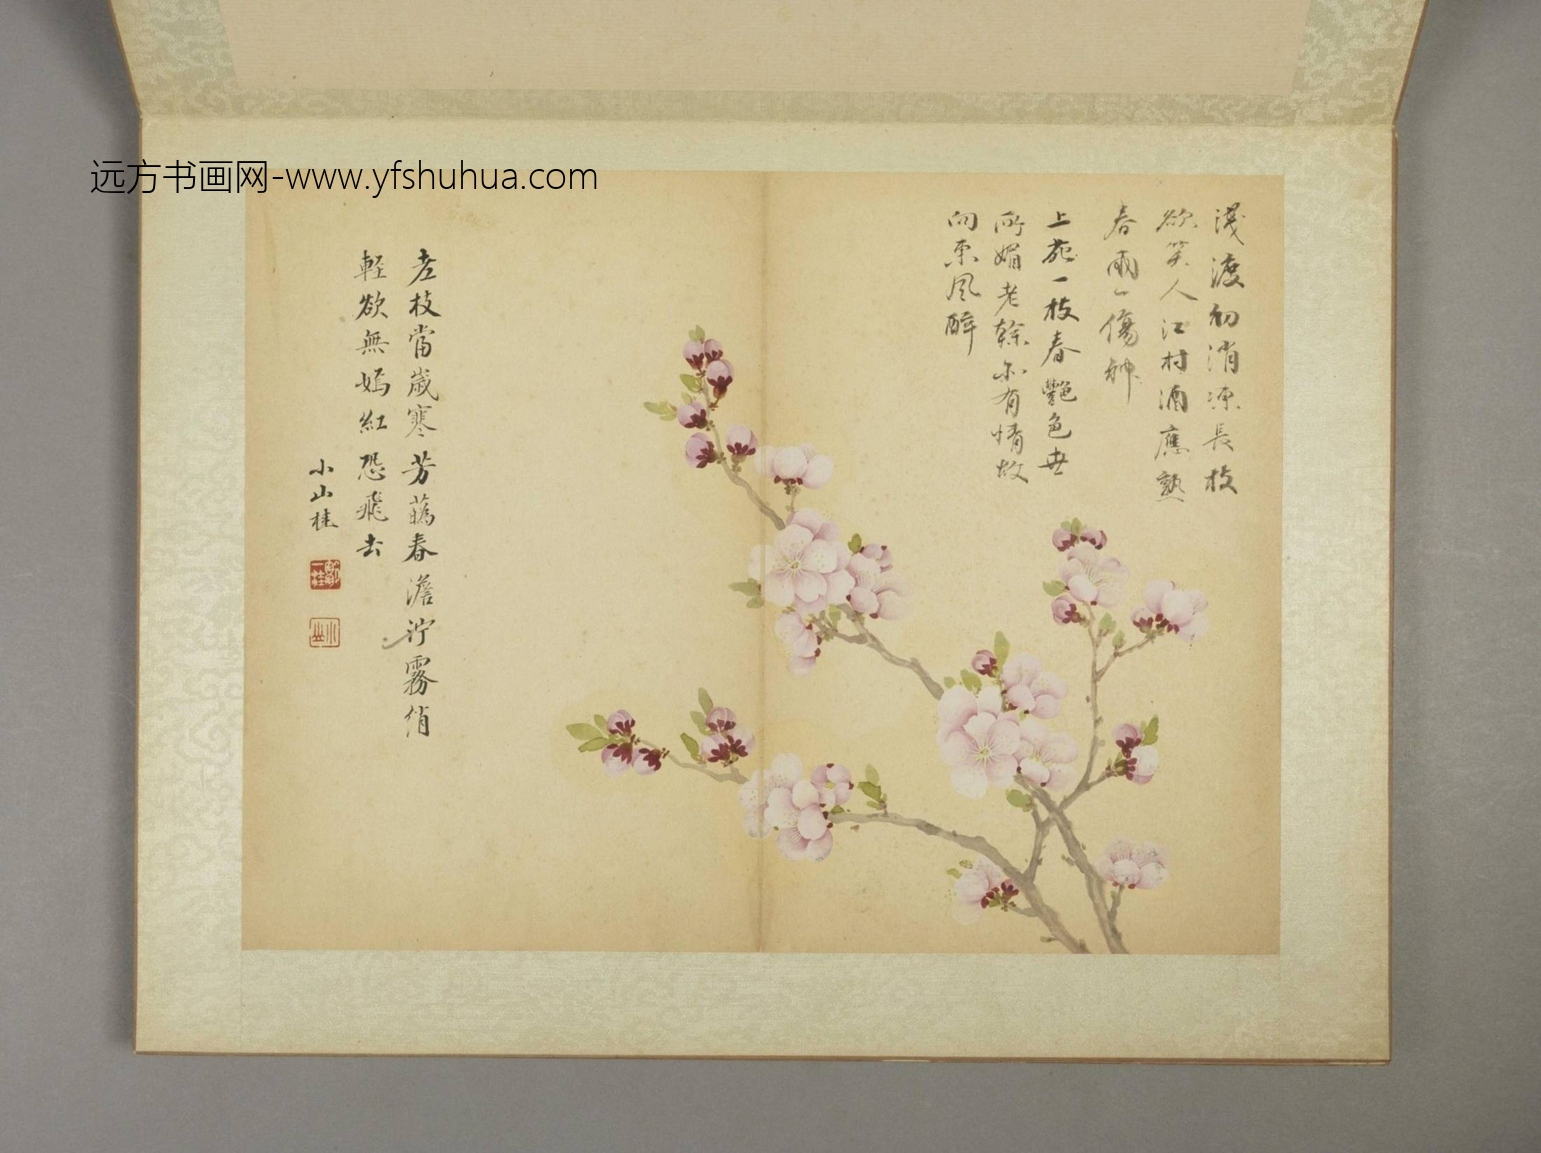 远方书画网-www.yfshuhua.com
淺渡初消凍長枝
欲笑人江村酒應熟
春雨一傷神
上苑一枝春艷色世
所媚老榦亦有情故
向東風醉
老枝當歲寒芳蕚春澹泞霧綃
輕欲無嫣紅恐飛去
小山桂
鄒一桂
小山